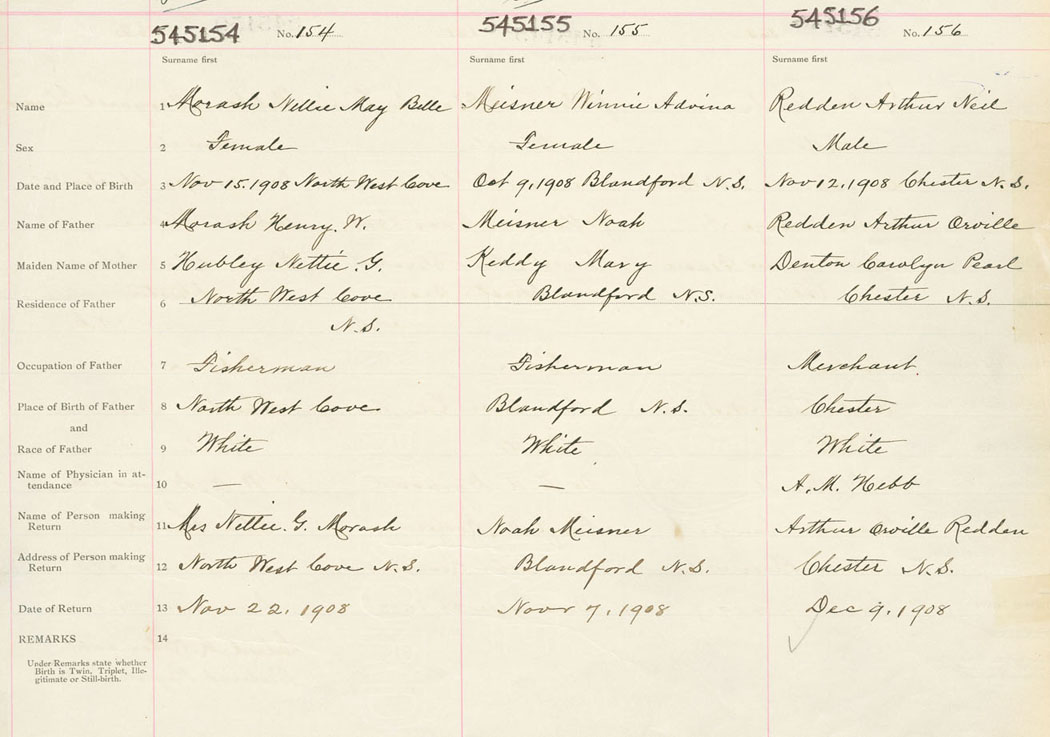 545154 No. 154 545155 No. 155 545156 No. 156
Surname first Surname first Surname first
Name 1 Morash Nellie May Belle Meisner Winnie Advina Redden Arthur Neil
Sex 2 Female Female Male
Date and Place of Birth 3 Nov 15. 1908 North West Cove Oct 9, 1908 Blandford N.S. Nov 12, 1908 Chester N.S.
Name of Father 4 Morash Henry. W. Meisner Noah Redden Arthur Orville
Maiden Name of Mother 5 Hubley Nettie. G. Keddy Mary Denton Carolyn Pearl
Residence of Father 6 North West Cove Blandford N.S. Chester N.S.
N.S.
Occupation of Father 7 Fisherman Fisherman Merchant.
Place of Birth of Father 8 North West Cove Blandford N.S. Chester
and
Race of Father 9 White White White
Name of Physician in at-
tendance 10 — — A. M. Hebb
Name of Person making
Return 11 Mrs Nettie. G. Morash Noah Meisner Arthur Orville Redden
Address of Person making
Return 12 North West Cove N.S. Blandford N.S. Chester N.S.
Date of Return 13 Nov 22, 1908 Novr 7, 1908 Dec 9, 1908
REMARKS 14
Under Remarks state whether
Birth is Twin, Triplet, Ille-
gitimate or Still-birth.